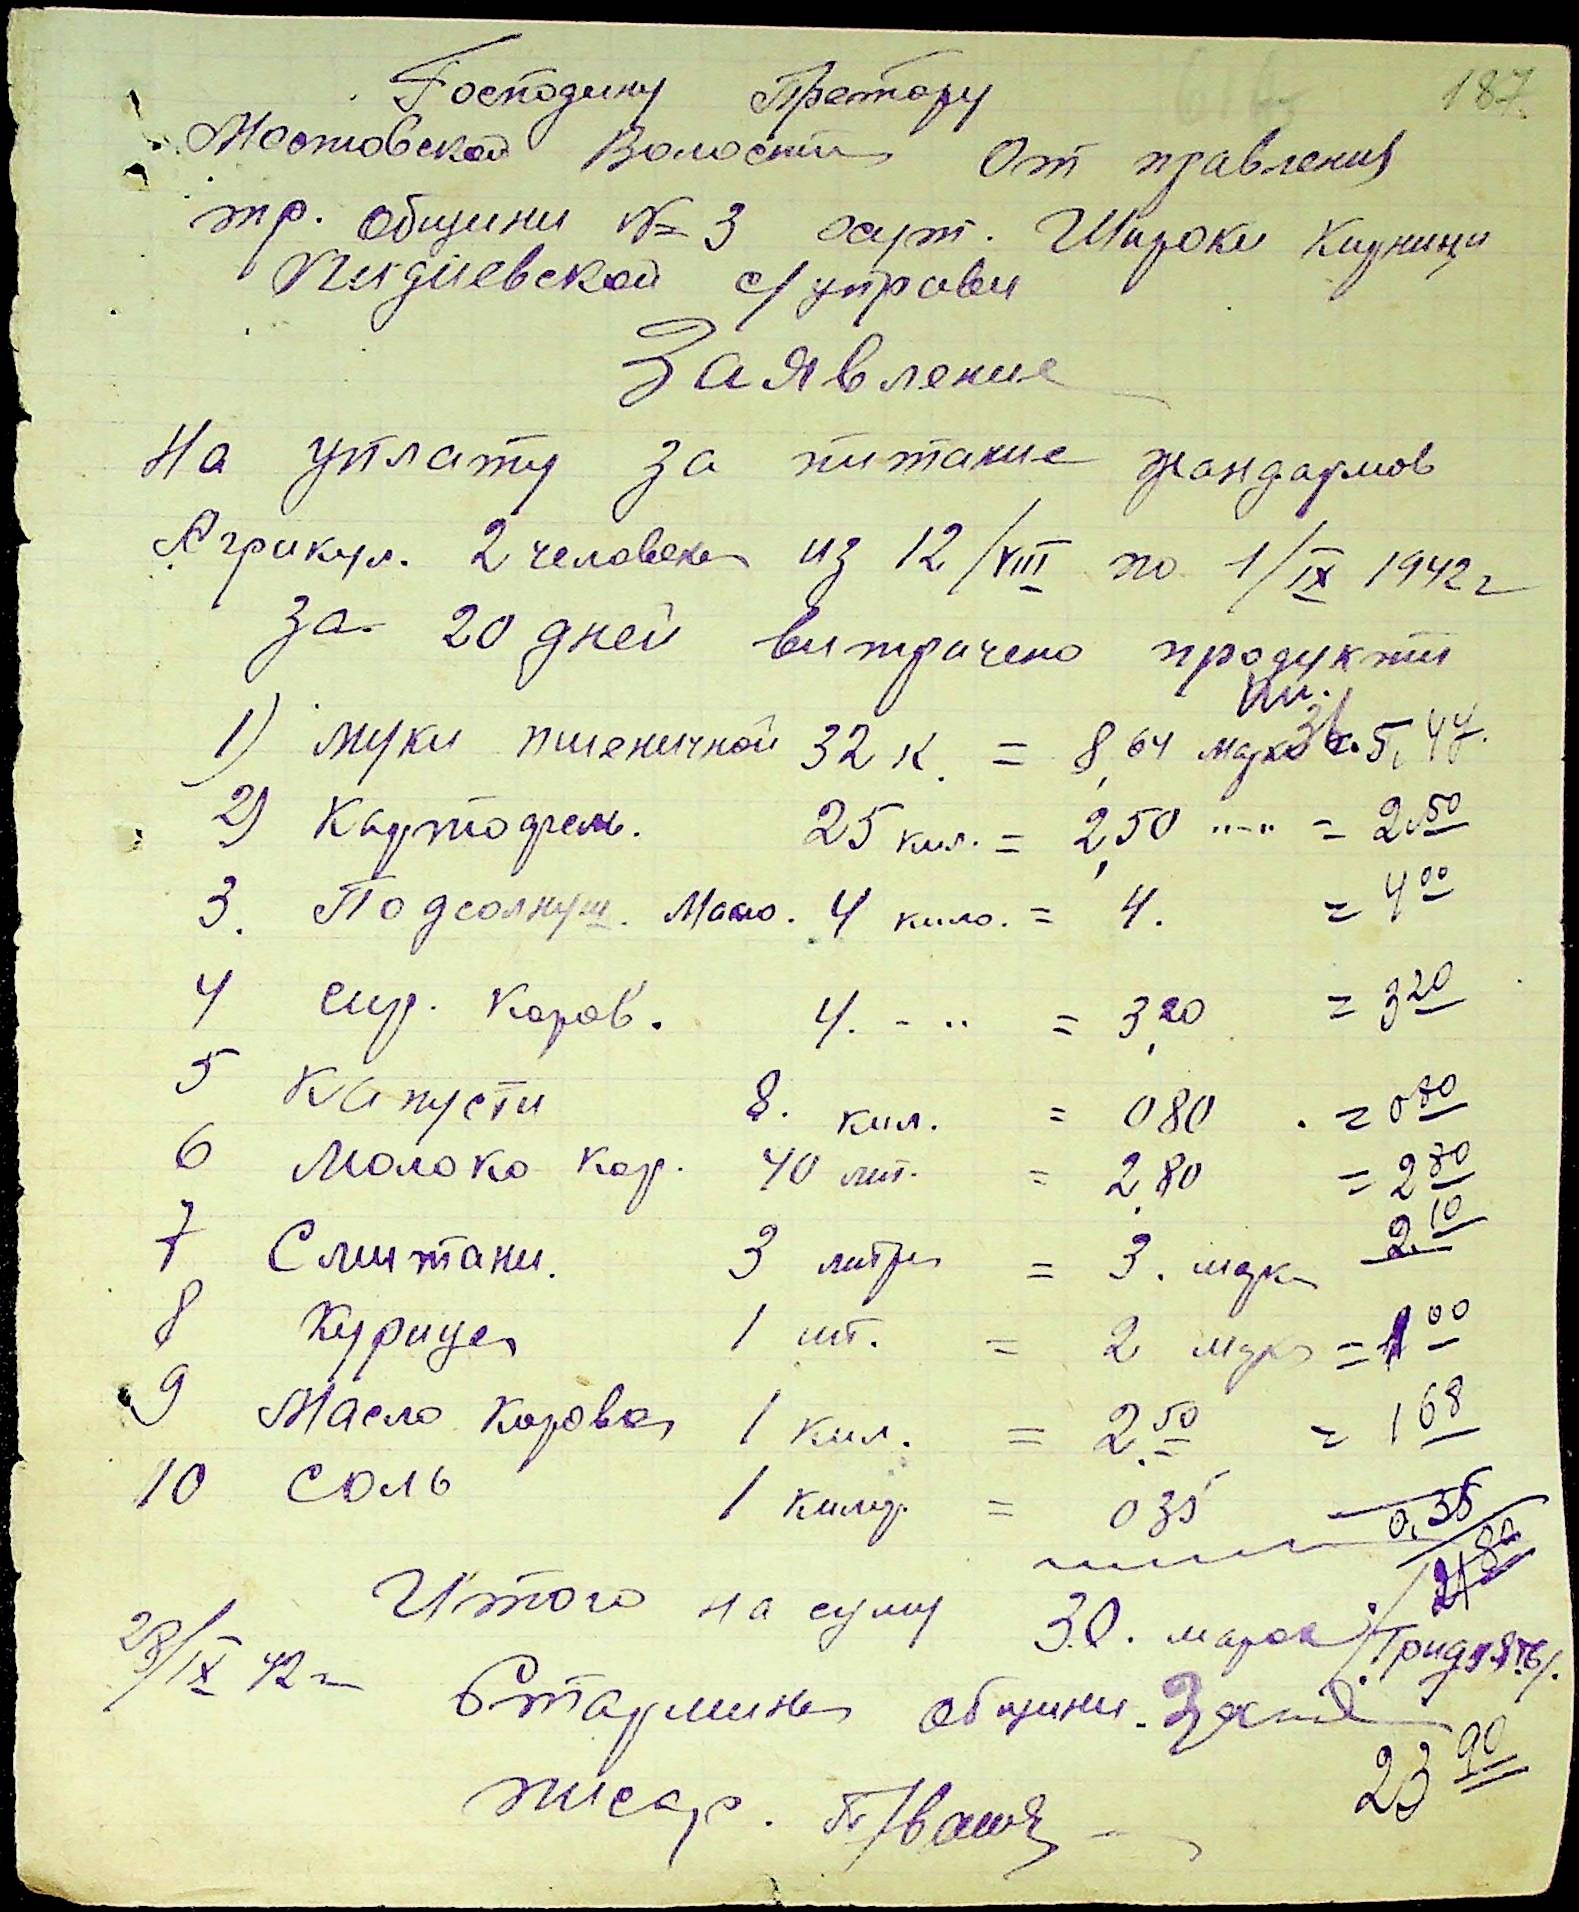 187
Господину Претору
Мостовской Волости От правления
тр. общини № 3 хут. Широки Кирници
с/управи
Заявление
На уплату за питание жандармов
Агрикул. 2 человека из 12/VIII по 1/IX 1942 г
за 20 дней витрачено продукти
1) Муки пшеничной 32 к. = 8,64 марк 5,44
2) Картофель. 25 кил. = 2,50 -"- = 2.50
3. Подсолнуш. Масло. 4 кило. = 4. = 4 00
4 сир. Коров. 4. - " = 3,20 = 3 20
5 Капусти 8. кил. = 080 . = 0 80
6 Молоко кор. 40 лит. = 2,80 = 2 80
7 Смитани. 3 литра = 3. марк 2.10
8 Курица 1 шт. = 2 марк = 1 00
9 Масло Корова 1 кил. = 2.50 = 1 68
10 Соль 1 килгр. = 035 0,35
Итого на суму 30. марок /Тридцять/.
23/IX 42 г Старшина общини.
23 90
писар.